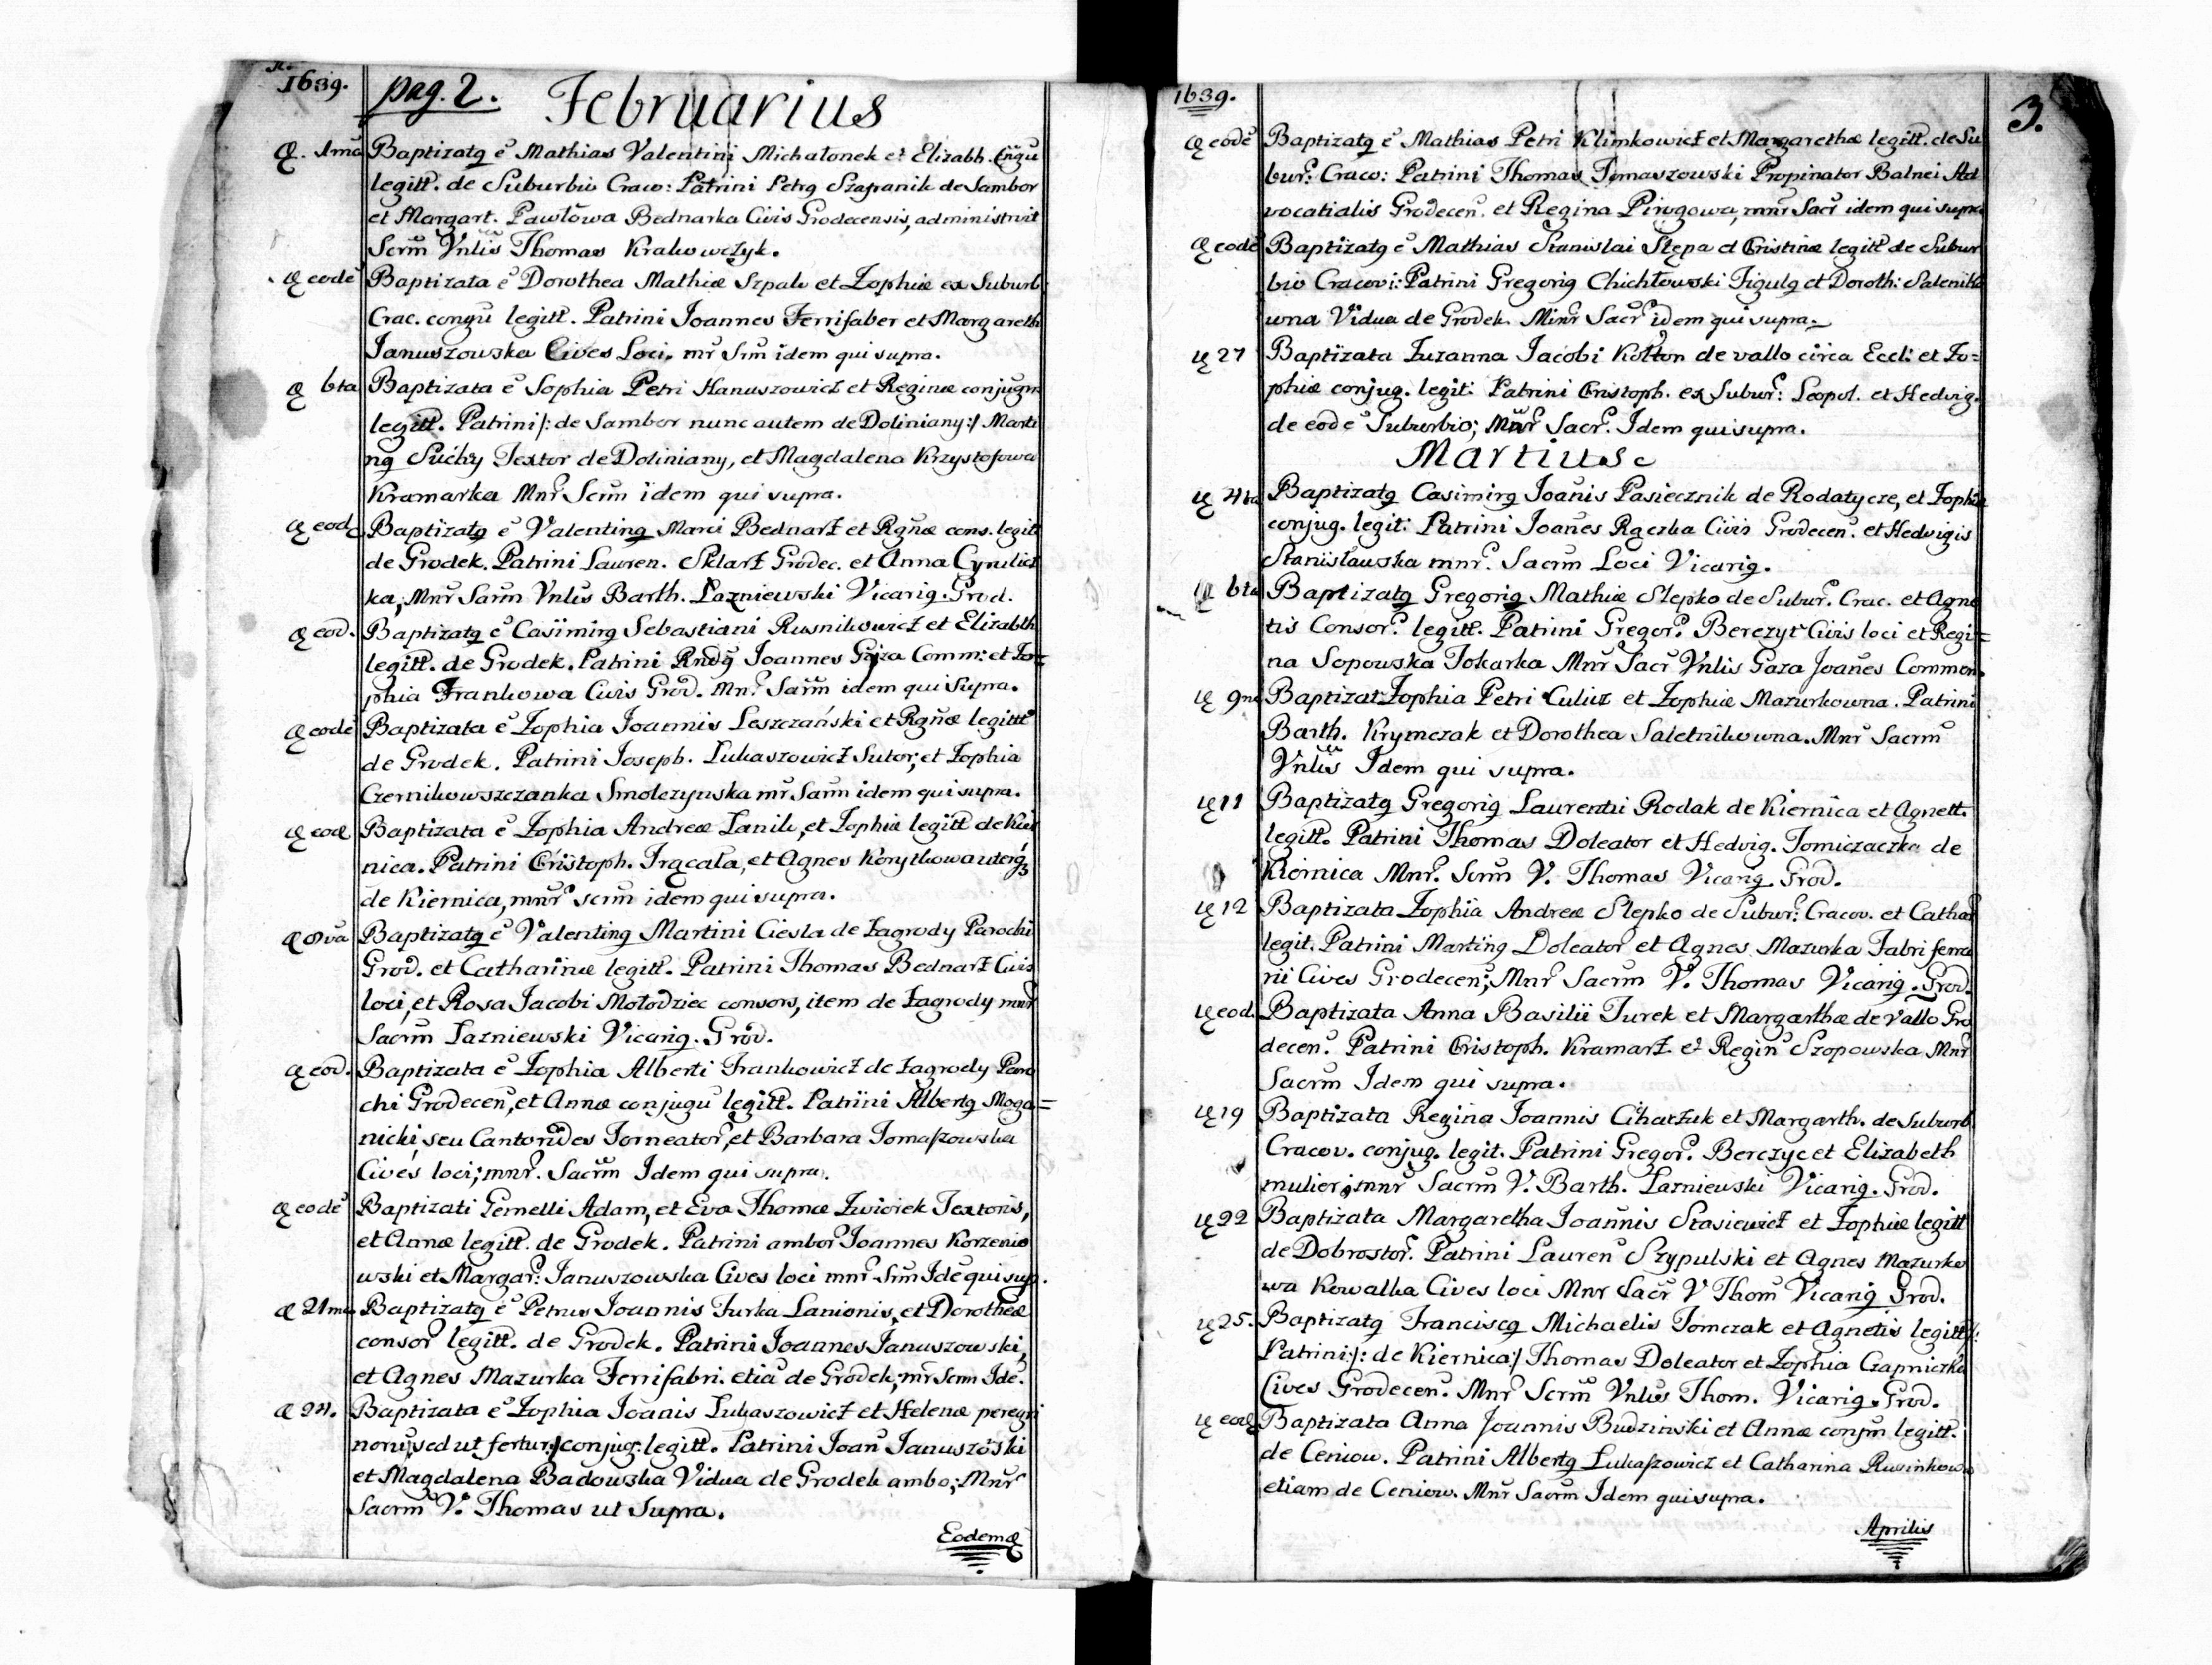 1639.
pag. 2. Februarius
1ma Baptizatq ẽ Mathias Valentini Michałonek et Elizabh. Cñgu
legitt. de Suburbio Craco: Patrini Petrq Szapanik de Sambor
et Margart. Pawłowa Bednarka Civis Grodecensis, administrvit
Scrm̃ Vnlis Thomas Krakowczyk.
eodẽ Baptizata ẽ Dorothea Mathiæ Szpak et Zophiæ ex Suburb:
Crac. congu legitt. Patrini Joannes Ferrifaber et Margareth
Januszowska Cives Loci. mr Srm idem qui supra.
6ta Baptizata ẽ Sophia Petri Hanuszowicz et Reginæ conjugm
legitt. Patrini /: de Sambor nunc autem de Doliniany :/ Marti
nq Suchy Textor de Doliniany, et Magdalena Krzysztofowa
Kramarka Mnr Scrm idem qui supra.
eod. Baptizatq ẽ Valentinq Marci Bednarz et Rgñæ cons. legitt
de Grodek. Patrini Lauren. Sklarz Grodec. et Anna Cyrulicz
ka, Mnr Sarm Vnlis Barth. Lazniewski Vicariq. Grod.
eod. Baptizatq ẽ Casimirq Sebastiani Rusnikowicz et Elizabth
legitt. de Grodek. Patrini Rndq Joannes Gaza Comm: et Zo=
phia Frankowa Civis Grod. Mnr Sarm̃ idem qui Supra.
eodẽ Baptizata ẽ Zophia Joannis Leszczański et Rgñæ legittt
de Grodek. Patrini Joseph. Lukaszowicz Sutor, et Zophia
Czernikowszczanka Smolczynska mr Sarm idem qui supra.
eod Baptizata ẽ Zophia Andreæ Lanik, et Zophiæ legitt de Kier
nica. Patrini Cristoph. Trącała, et Agnes Korytkowa uterq3
de Kiernica, mnr scrm idem qui supra.
8va Baptizatq ẽ Valentinq Martini Ciesla de Zagrody Parochi
Grod. et Catharinæ legitt. Patrini Thomas Bednarz Civis
loci, et Rosa Jacobi Mołodziec consors, item de Zagrody mnr
Sacrm Lazniewski Vicariq. Grod.
eod. Baptizata ẽ Zophia Alberti Frankowicz de Zagrody Paro
chi Grodecen, et Annæ conjugu legitt. Patrini Albertq Moga=
nicki, seu Cantorides Torneator, et Barbara Tomaszowska
Cives loci; mnr. Sacrm̃ Idem qui supra.
eodẽ Baptizati Gemelli Adam, et Eva Thomæ Zwiorek Textoris,
et Annæ legitt. de Grodek. Patrini ambor Joannes Korzenio
wski et Margar: Januszowska Cives loci mnr Srm Idẽ qui sup.
21ma Baptizatq ẽ Petrus Joannis Furka Lanionis, et Dorotheæ
consor legitt. de Grodek. Patrini Joannes Januszowski,
et Agnes Mazurka Ferrifabri. etiã de Grodek, mr Scrm Idẽ.
24. Baptizata ẽ Zophia Joanis Lukaszowicz et Helenæ peregri
noru, sed ut fertur :/ conjug. legitt. Patrini Joan Januszoski
et Magdalena Badowska Vidua de Grodek ambo; Mnr
Sacrm V. Thomas ut Supra.
Eodem
1639.
3.
eodẽ Baptizatq ẽ Mathias Petri Klimkowicz et Margarethæ legitt. de Su
bur: Craco: Patrini Thomas Tomaszowski Propinator Balnei Ad
vocatialis Grodecen. et Regina Pirogowa, mnr Sacr idem qui supra
eodẽ Baptizatq ẽ Mathias Stanislai Stępa et Cristinæ legitt de Subur
bio Cracovi: Patrini Gregoriq Chichłowski Figulq et Doroth: Saleniko
wna Vidua de Grodek. Minr Sacr idem qui supra.
27 Baptizata Zuzanna Jacobi Kołton de vallo circa Eccl: et Zo=
phiæ conjug. legit: Patrini Cristoph. ex Subur: Leopol. et Hedvig.
de eodẽ Suburbio; Mnr Sacr. Idem qui supra.
Martius
4ta Baptizatq Casimirq Joanis Pasiecznik de Rodatycze, et Zophiæ
conjug. legit: Patrini Joanes Rączka Civis Grodecen. et Hedvigis
Stanisławska mnr. Sacrm Loci Vicariq.
6ta Baptizatq Gregoriq Mathiæ Slepko de Subur. Crac. et Agne
tis Consor. legitt. Patrini Gregor. Berezyt Civis loci et Regi=
na Sopowska Tokarka Mnr Sacr Vnlis Gaza Joanes Common.
9na Baptizat Zophia Petri Culicz et Zophiæ Mazurkowna. Patrini
Barth. Krymczak et Dorothea Saletnikowna. Mnr Sacrm
Vnlis Idem qui supra.
11 Baptizatq Gregoriq Laurentii Rodak de Kiernica et Agnett.
legitt. Patrini Thomas Doleator et Hedvig. Tomiczaczka de
Kiernica Mnr. Scrm V. Thomas Vicariq. Grod.
12 Baptizata Zophia Andreæ Slepko de Subur: Cracov. et Cathar
legit. Patrini Martinq Doleator et Agnes Mazurka Fabri ferra
rii Cives Grodecen; Mnr Sacrm V. Thomas Vicariq. Grod.
eod. Baptizata Anna Basilii Turek et Margarthæ de Vallo Gro
decen. Patrini Cristoph. Kramarz. et Regin Szopowska Mnr
Sacrm Idem qui supra.
19 Baptizata Regina Joannis Ciharzuk et Margarth. de Suburb
Cracov. conjug. legit. Patrini Gregor. Berczyc et Elizabeth
mulier; mnr Sacrm V. Barth. Lazniewski Vicariq. Grod.
22 Baptizata Margaretha Joannis Stasiewicz et Zophiæ legitt
de Dobrostor. Patrini Lauren Szypulski et Agnes Mazurko
wa Kowalka Cives loci Mnr Sacr V Thom Vicariq Grod.
25. Baptizatq Franciscq Michaelis Tomczak et Agnetis legitt:
Patrini /: de Kiernica :/ Thomas Doleator et Zophia Czapniczka
Cives Grodecen. Mnr Scrm Vnlis Thom. Vicariq. Grod.
eod Baptizata Anna Joannis Budzinski et Annæ conjm legitt.
de Ceniow. Patrini Albertq Lukaszowicz et Catharina Rusinkowa
etiam de Ceniow. Mnr Sacrm Idem qui supra.
Aprilis